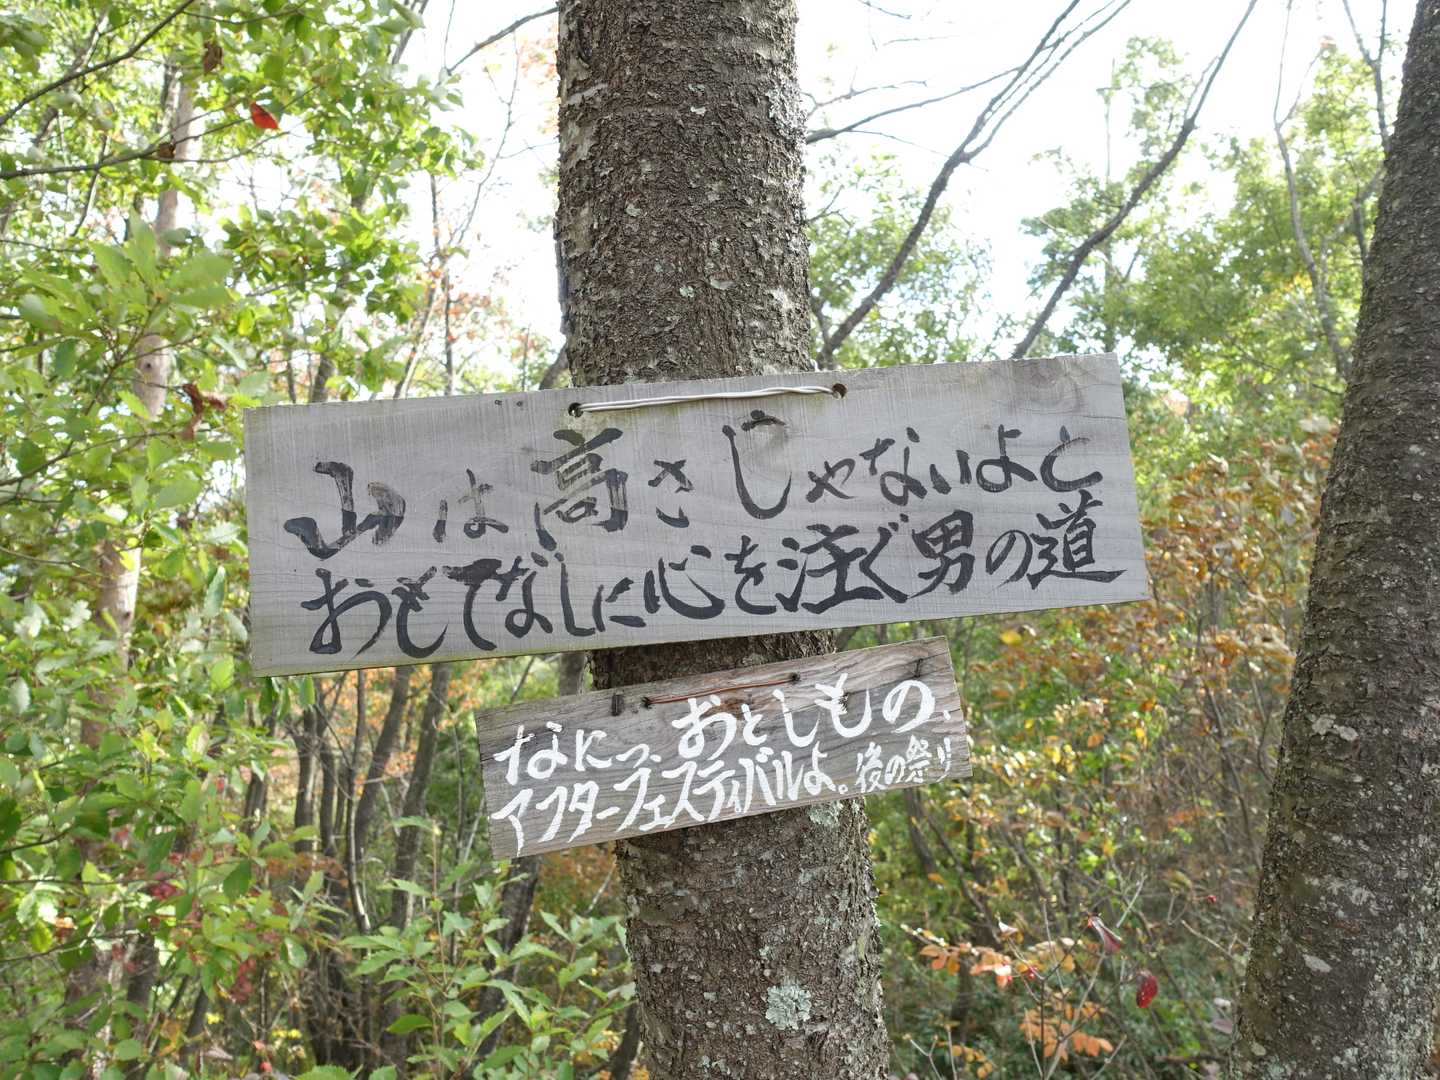 山は高さじゃないよと
おもてなしに心を注ぐ男の道
なにっ、おとしもの、
アフターフェスティバルよ。後の祭り